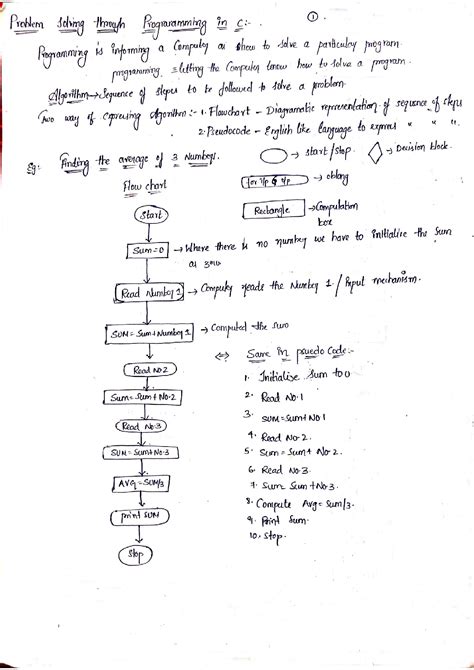 Problem Solving through Programming in C:-
1
Programming is informing a Computer as to how to solve a particular program.
programming = letting the Computer know how to solve a program.
Algorithm → Sequence of steps to be followed to solve a problem.
Two way of expressing Algorithm:- 1. Flowchart - Diagramatic representation of sequence of steps
2. Pseudocode - English like language to express " " ".
Eg: Finding the average of 3 Numbers.
→ start/stop.
→ Decision block.
Flow chart
for i/p & o/p → oblong
Rectangle → Computation box
Start
Sum=0 → Where there is no number we have to initialize the sum
as zero
Read Number 1 → Computer reads the Number 1. / Input mechanism.
SUM = Sum+Number 1 → Computed the sum
⇔ Same in psuedo Code:-
Read No 2
1. Initialise sum to 0
Sum=Sum+No.2
2. Read No.1
3. SUM=Sum+NO1
Read No.3
4. Read No.2.
SUM=Sum+No.3
5. Sum = Sum+ No.2.
6. Read No.3.
AVG=SUM/3
7. Sum= Sum+No.3
8. Compute Avg = Sum/3.
print SUM
9. Print Sum.
10. Stop.
Stop